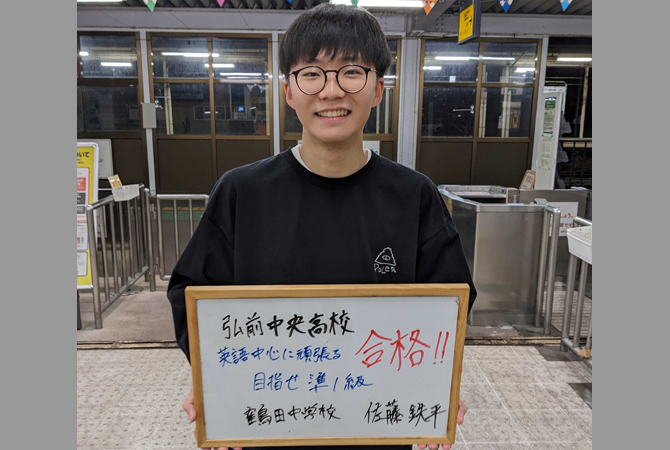 POLeR
弘前中央高校
合格!!
英語中心に頑張る
目指せ 準1級
鶴田中学校 佐藤 鉄平